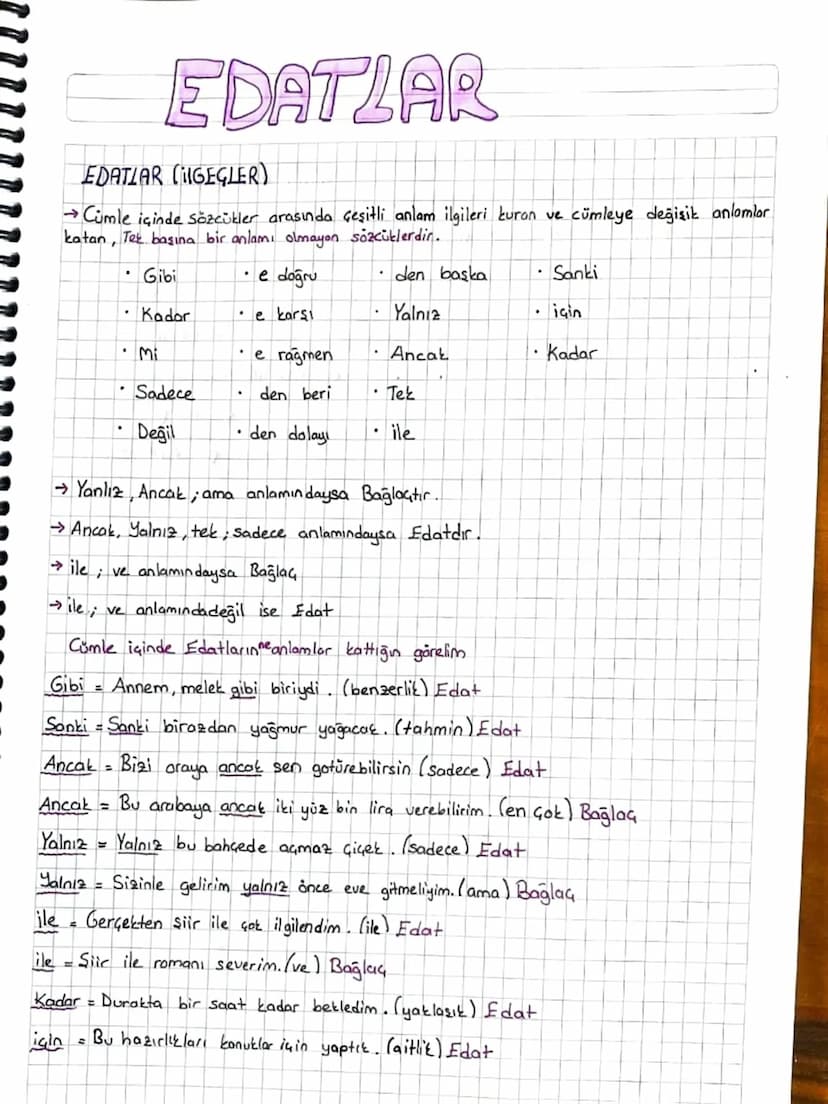 EDATLAR
EDATLAR (İLGEÇLER)
→ Cümle içinde sözcükler arasında çeşitli anlam ilgileri kuran ve cümleye değişik anlamlar
katan, Tek başına bir anlamı olmayan sözcüklerdir.
· Gibi · e doğru · den başka · Sanki
· Kadar · e karşı · Yalnız · için
· Mi · e rağmen · Ancak · Kadar
· Sadece · den beri · Tek
· Değil · den dolayı · ile
→ Yanlız, Ancak ; ama anlamındaysa Bağlaçtır.
→ Ancak, Yalnız, tek ; sadece anlamındaysa Edatdır.
→ ile ; ve anlamındaysa Bağlaç
→ ile ; ve anlamındadeğil ise Edat
Cümle içinde Edatların ne anlamlar kattığın görelim
Gibi = Annem, melek gibi biriydi. (benzerlik) Edat
Sanki = Sanki birazdan yağmur yağacak. (tahmin) Edat
Ancak = Bizi oraya ancak sen götürebilirsin (sadece) Edat
Ancak = Bu arabaya ancak iki yüz bin lira verebilirim. (en çok) Bağlaç
Yalnız = Yalnız bu bahçede açmaz çiçek. (sadece) Edat
Yalnız = Sizinle gelirim yalnız önce eve gitmeliyim. (ama) Bağlaç
ile = Gerçekten şiir ile çok ilgilendim. (ile) Edat
ile = Şiir ile romanı severim. (ve) Bağlaç
Kadar = Durakta bir saat kadar bekledim. (yaklaşık) Edat
için = Bu hazırlıkları konuklar için yaptık. (aitlik) Edat